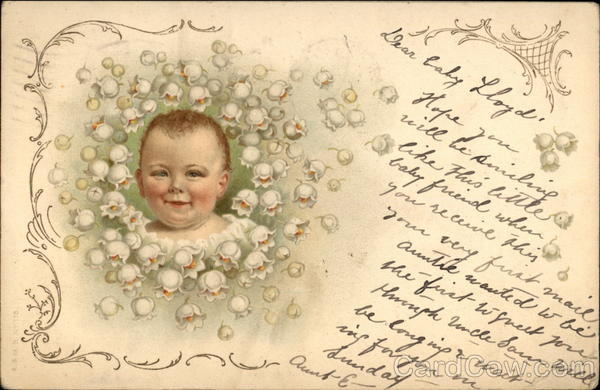 Dear baby Lloyd'
Hope you
will be smiling
like this little
baby friend when
you receive this
your very first mail
auntie wanted to be
the first to greet you
through Uncle Sam
be longing
Sunday
Aunt E
CardCow.com